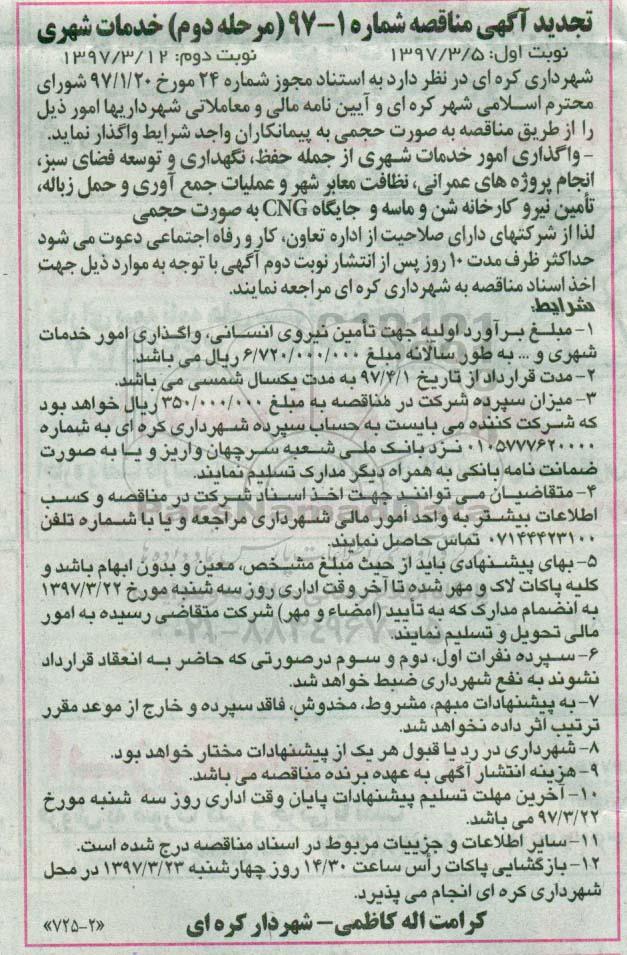 تجدید آگهی مناقصه شماره ۱-۹۷ (مرحله دوم) خدمات شهری
نوبت اول: ۱۳۹۷/۳/۵ نوبت دوم: ۱۳۹۷/۳/۱۲
شهرداری کره ای در نظر دارد به استناد مجوز شماره ۲۴ مورخ ۹۷/۱/۲۰ شورای
محترم اسلامی شهر کره ای و آیین نامه مالی و معاملاتی شهرداریها امور ذیل
را از طریق مناقصه به صورت حجمی به پیمانکاران واجد شرایط واگذار نماید.
- واگذاری امور خدمات شهری از جمله حفظ، نگهداری و توسعه فضای سبز،
انجام پروژه های عمرانی، نظافت معابر شهر و عملیات جمع آوری و حمل زباله،
تأمین نیرو کارخانه شن و ماسه و جایگاه CNG به صورت حجمی
لذا از شرکتهای دارای صلاحیت از اداره تعاون، کار و رفاه اجتماعی دعوت می شود
حداکثر ظرف مدت ۱۰ روز پس از انتشار نوبت دوم آگهی با توجه به موارد ذیل جهت
اخذ اسناد مناقصه به شهرداری کره ای مراجعه نمایند.
شرایط:
۱- مبلغ برآورد اولیه جهت تأمین نیروی انسانی، واگذاری امور خدمات
شهری و ... به طور سالانه مبلغ ۶/۷۲۰/۰۰۰/۰۰۰ ریال می باشد.
۲- مدت قرارداد از تاریخ ۹۷/۴/۱ به مدت یکسال شمسی می باشد.
۳- میزان سپرده شرکت در مناقصه به مبلغ ۳۵۰/۰۰۰/۰۰۰ ریال خواهد بود
که شرکت کننده می بایست به حساب سپرده شهرداری کره ای به شماره
۰۱۰۵۷۷۷۶۲۰۰۰۰ نزد بانک ملی شعبه سرچهان واریز و یا به صورت
ضمانت نامه بانکی به همراه دیگر مدارک تسلیم نمایند.
۴- متقاضیان می توانند جهت اخذ اسناد شرکت در مناقصه و کسب
اطلاعات بیشتر به واحد امور مالی شهرداری مراجعه و یا با شماره تلفن
۰۷۱۴۴۴۲۳۱۰۰ تماس حاصل نمایند.
۵- بهای پیشنهادی باید از حیث مبلغ مشخص، معین و بدون ابهام باشد و
کلیه پاکات لاک و مهر شده تا آخر وقت اداری روز سه شنبه مورخ ۱۳۹۷/۳/۲۲
به انضمام مدارک که به تأیید (امضاء و مهر) شرکت متقاضی رسیده به امور
مالی تحویل و تسلیم نمایند.
۶- سپرده نفرات اول، دوم و سوم درصورتی که حاضر به انعقاد قرارداد
نشوند به نفع شهرداری ضبط خواهد شد.
۷- به پیشنهادات مبهم، مشروط، مخدوش، فاقد سپرده و خارج از موعد مقرر
ترتیب اثر داده نخواهد شد.
۸- شهرداری در رد یا قبول هر یک از پیشنهادات مختار خواهد بود.
۹- هزینه انتشار آگهی به عهده برنده مناقصه می باشد.
۱۰- آخرین مهلت تسلیم پیشنهادات پایان وقت اداری روز سه شنبه مورخ
۹۷/۳/۲۲ می باشد.
۱۱- سایر اطلاعات و جزییات مربوط در اسناد مناقصه درج شده است.
۱۲- بازگشایی پاکات رأس ساعت ۱۴/۳۰ روز چهارشنبه ۱۳۹۷/۳/۲۳ در محل
شهرداری کره ای انجام می پذیرد.
کرامت اله کاظمی - شهردار کره ای
«۷۲۵-۲»
ParsNamadData